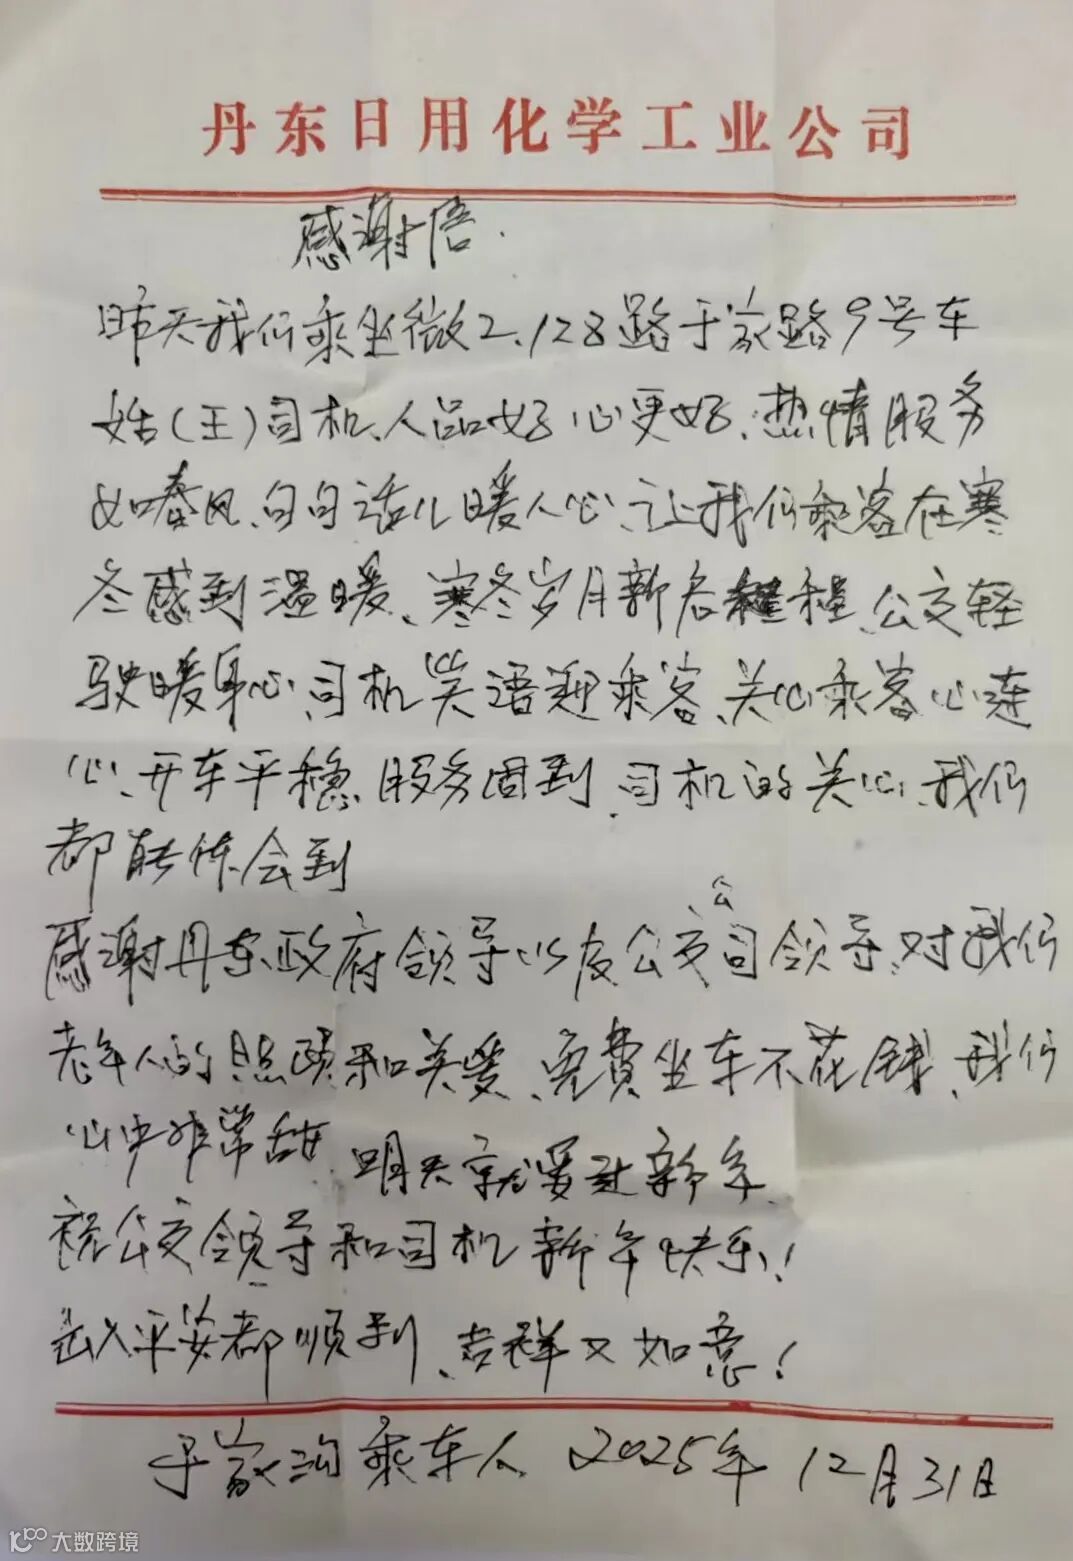 丹东日用化学工业公司
感谢信.
昨天我们乘坐微2、128路于家路9号车
姓(王)司机、人品好心更好、热情服务
如春风、句句话儿暖人心、让我们乘客在寒
冬感到温暖、寒冬岁月新启程、公交轻
驶暖身心、司机笑语迎乘客、关心乘客心连
心、开车平稳、服务周到、司机的关心、我们
都能体会到
感谢丹东政府领导以及公交公司领导、对我们
老年人的照顾和关爱、免费坐车不花钱、我们
心中非常甜、明天就要过新年、
祝公交领导和司机新年快乐!
出入平安都顺利、吉祥又如意!
于家沟乘车人 2025年12月31日
大数跨境